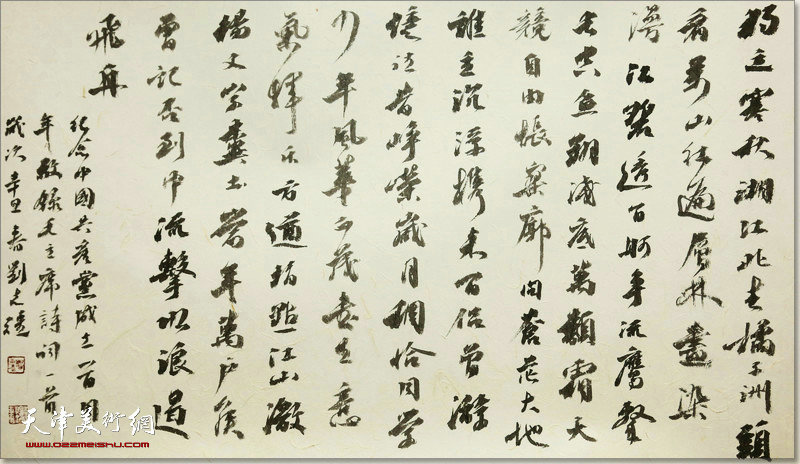 独立寒秋湘江北去橘子洲头
看万山红遍层林尽染
漫江碧透百舸争流鹰击
长空鱼翔浅底万類霜天
競自由悵寥廓问蒼茫大地
誰主沉浮携来百侣曾游
憶往昔峥嵘歲月稠恰同学
少年風華正茂書生意
氣揮斥方遒指點江山激
揚文字糞土當年萬户侯
曾記否到中流擊水浪遏
飛舟
纪念中國共産黨成立一百周
年敬錄毛主席詩词一首
歲次辛丑春劉
天津美術網
www.022meishu.com